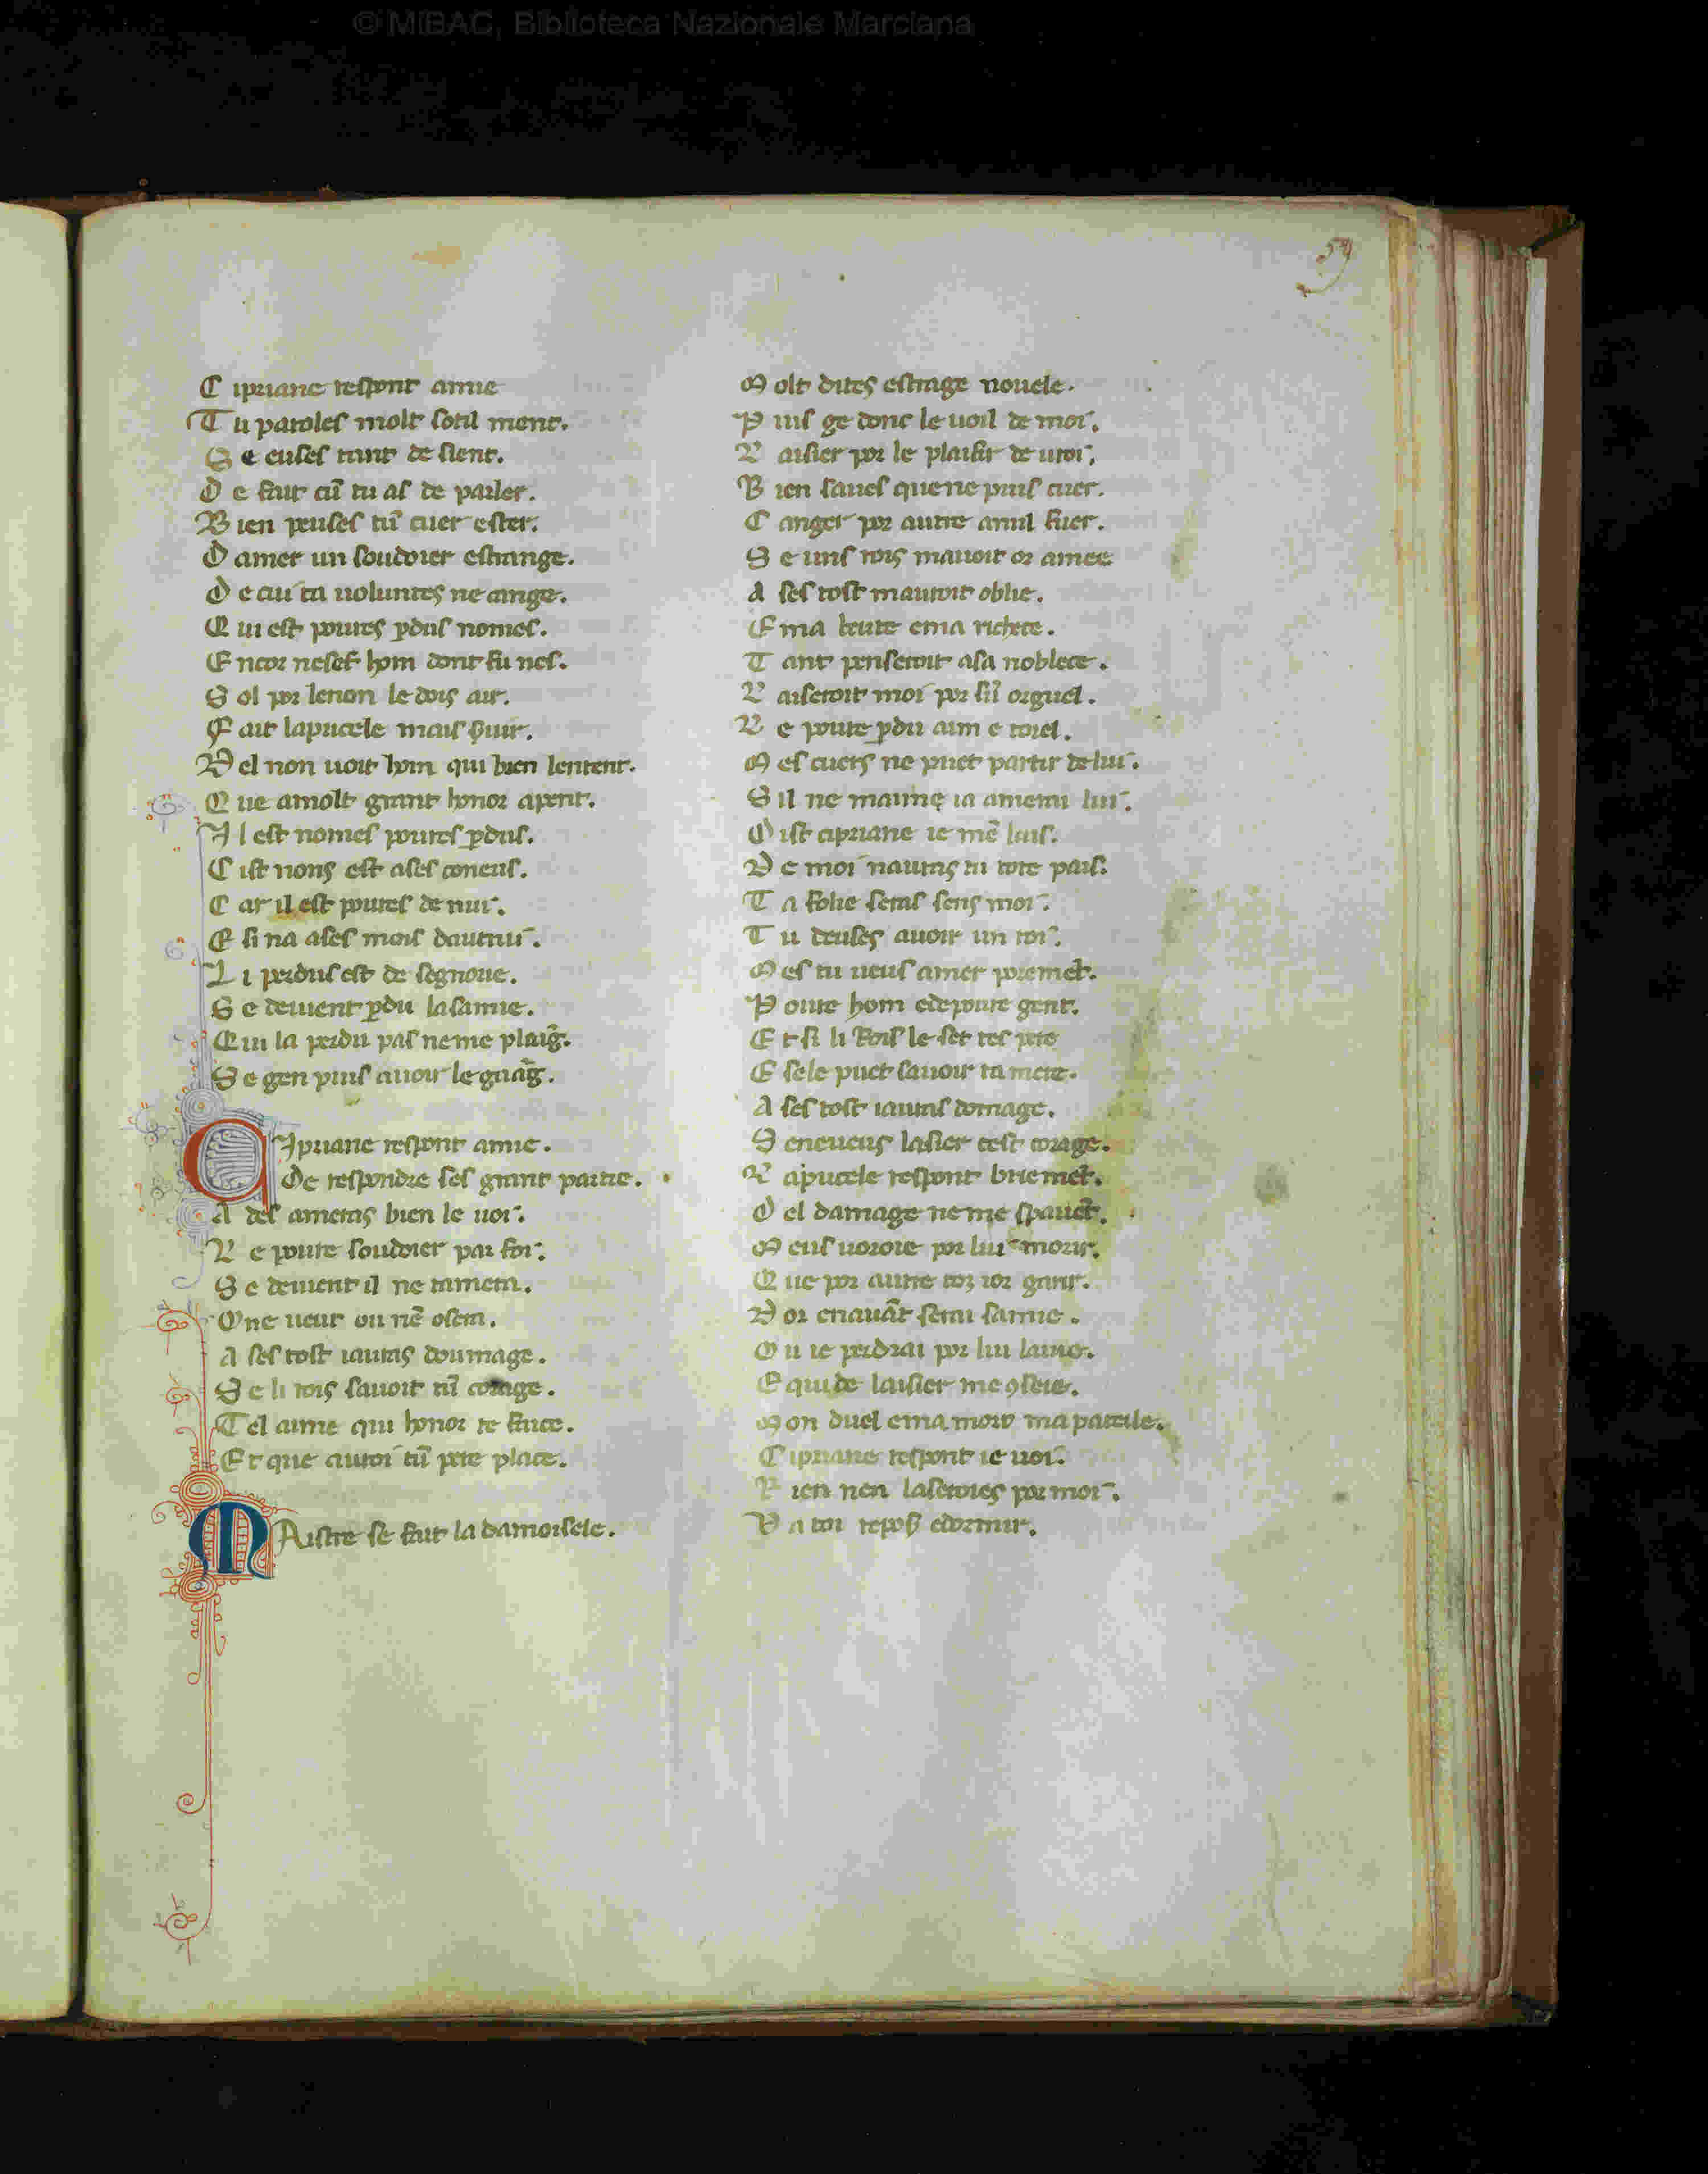 © MiBAC, Biblioteca Nazionale Marciana
59
C ipriane respont amie
T u paroles molt sotil ment.
S e euses tant de sient.
D e fait cū tu as de parler.
B ien peuses tū cuer ester.
D amer un soudoier estrange.
D e cui ta uoluntes ne cange.
Q ui est poures pdus nomes.
E ncor neset hom dont fu nes.
S ol por lenon le dois air.
F ait lapucele mais
N el non uoir hom qui bien lentent.
Q ue amolt grant honor apent.
I l est nomes poures pdus.
C ist nons est ases coneus.
C ar il est poures de nui.
E si na ases mois dautrui.
L i perdus est de segnorie.
S e deuient pdu lasamie.
Q ui la perdu pas ne me plaig.
S e gen puis auoir le gaag.
C Ipriane respont amie.
De respondre ses grant partie.
A des ameras bien le uoi.
L e poure soudoier par foi.
S e deuient il ne tamera.
O ne ueut ou nē osera.
A ses tost iauras doumage.
S e li rois sauoit tū corage.
T el aime qui honor te face.
E t que autroi tū pere place.
M Aistre se fait la damoisele.
M olt dites estrage nouele.
P uis ge donc le uoil de moi.
L aisier por le plaisir de uroi.
B ien saues quene puis cuer.
C anger por autre anul fuer.
S e uns rois mauoit or amee
A ses tost mauroit oblie.
E ma beute ema richece.
T ant penseroit asa noblece.
L aiseroit moi por sū orguel.
L e poure pdu aim e
M es cuers ne puet partir delui.
S il ne maime ia amerai lui.
D ist cipriane ie mē
N e moi nauras tu tote pais.
T a folie seras sens moi.
T u deuses auoir un roi.
M es tu ueus amer poremēt.
P oure hom edepoure gent.
E t si li Rois le set tes pere
E sele puet sauoir ta mere.
A ses tost iauras domage.
S eneueus lasier cest corage.
L apucele respont briemēt.
D el damage neme spauēt.
M eus uoroie por lui morir.
Q ue por autre toz iors
D or enauāt serai samie.
O u ie perdrai por lui lauie.
E quide laisier me
M on duel ema mort mapareile.
C ipriane respont ie uoi.
R ien nen laseroies por moi.
V a toi repos edormir.